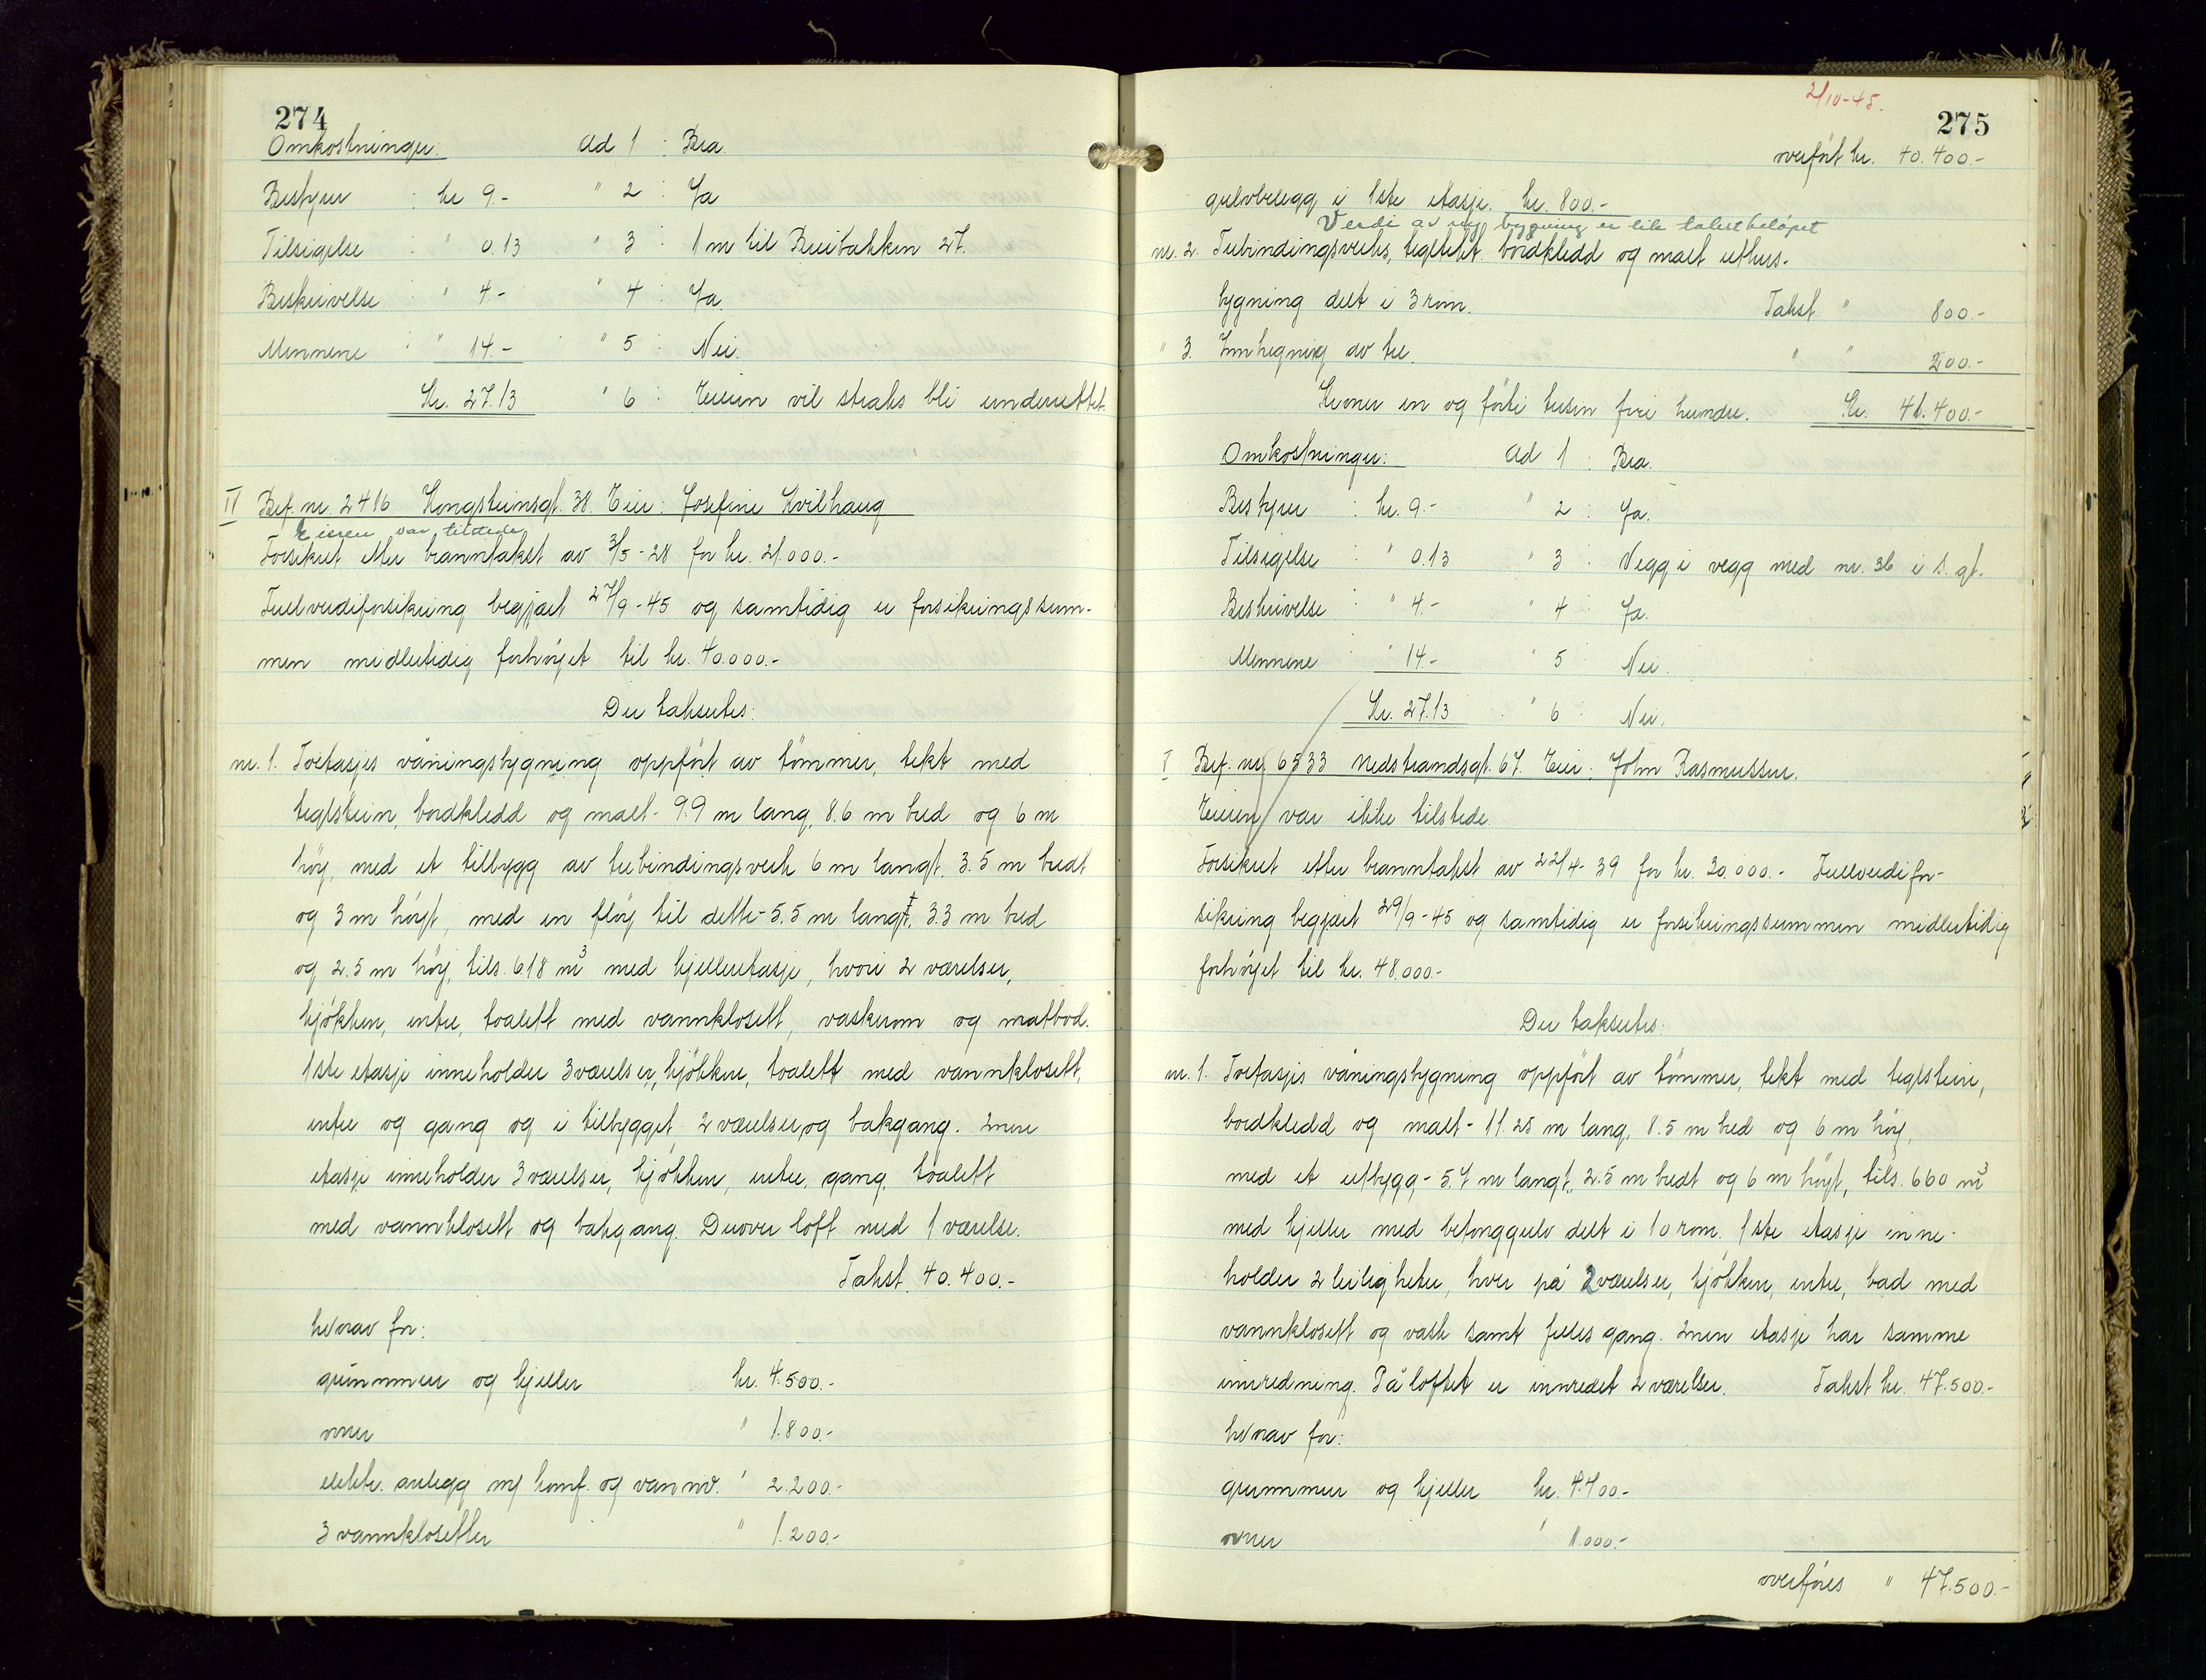 274
Omkostninger: ad 1 : Bra.
Bestyrer : kr 9.- " 2 : Ja
Tilsigelse : " 0.13 " 3 : 11 m til Breibakken 27.
Beskrivelse : " 4.- " 4 : Ja.
Mennene : " 14.- " 5 : Nei.
Kr. 27.13 " 6 : Eieren vil straks bli underrettet.
IV Bef. nr. 2416 Kongsteinsgt. 38. Eier: Josefine Kvilhaug
Eieren var tilstede
Forsikret etter branntakst av 3/5-28 for kr. 21.000.-
Fullverdiforsikring begjært 27/9-45 og samtidig er forsikringssum-
men midlertidig forhöyet til kr. 40.000.-
Der takseres:
nr. 1. Toetasjes våningsbygning oppfört av tömmer, tekt med
teglstein, bordkledd og malt - 9.9 m lang, 8.6 m bred og 6 m
höy, med et tilbygg av trebindingsverk 6 m langt, 3.5 m bredt
og 3 m höyt, med en flöy til dette - 5.5 m langt, 3.3 m bred
og 2.5 m höy, tils. 618 m³ med kjelleretasje, hvori 2 værelser,
kjökken, entre, toalett med vannklosett, vaskerom og matbod.
1ste etasje inneholder 3 værelser, kjökken, toalett med vannklosett,
entre og gang og i tilbygget 2 værelser og bakgang. 2nen
etasje inneholder 3 værelser, kjökken, entre, gang, toalett
med vannklosett og bakgang. Derover loft med 1 værelse.
Takst. 40.400.-
hvorav for:
grunnmur og kjeller kr. 4.500.-
ovner " 1.800.-
elektr. anlegg m/ komf. og vannv. " 2.200.-
3 vannklosetter " 1.200.-
2/10-45.
275
overfört kr. 40.400.-
gulvbelegg i 1ste etasje. kr. 800.-
Verdi av bygning er lik takstbelöpet
nr. 2. Trebindingsverks, tegltekt bordkledd og malt uthus-
bygning delt i 3 rom. Takst " 800.-
" 3. Innhegning av tre. " " 200.-
Kroner en og förti tusen fire hundre. Kr. 41.400.-
Omkostninger: ad 1 : Bra.
Bestyrer : kr. 9.- " 2 : Ja.
Tilsigelse : " 0.13 " 3 : Vegg i vegg med nr. 36 i s. gt.
Beskrivelse : " 4.- " 4 : Ja.
Mennene : " 14.- " 5 : Nei.
Kr. 27.13 " 6 : Nei.
V Bef. nr. 6533 Nedstrandsgt. 67. Eier: John Rasmussen.
Eieren var ikke tilstede.
Forsikret etter branntakst av 22/4-39 for kr. 30.000.- Fullverdifor-
sikring begjært 29/9-45 og samtidig er forsikringssummen midlertidig
forhöyet til kr. 48.000.-
Der takseres:
nr. 1. Toetasjes våningsbygning oppfört av tömmer, tekt med teglstein,
bordkledd og malt - 11.25 m lang, 8.5 m bred og 6 m höy,
med et utbygg - 5.7 m langt, 2.5 m bredt og 6 m höyt, tils. 660 m³
med kjeller med betonggulv delt i 10 rom. 1ste etasje inne-
holder 2 leiligheter, hver på 2 værelser, kjökken, entre, bad med
vannklosett og vask samt felles gang. 2nen etasje har samme
innredning. På loftet er innredet 2 værelser. Takst kr. 47.500.-
hvorav for:
grunnmur og kjeller kr. 4.400.-
ovner " 1.000.-
overföres " 47.500.-